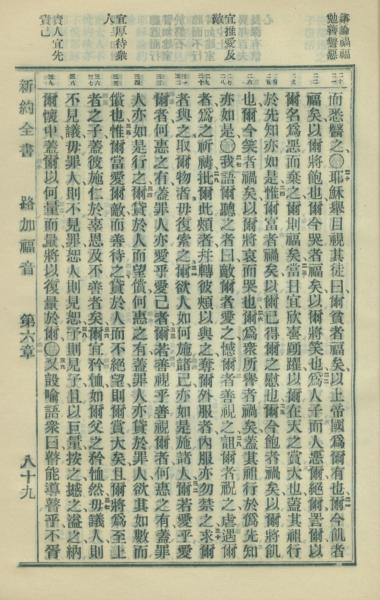 諭論禍福
勉善警惡
宜推愛及
敵
宜厚待衆
人
責人宜先
責己
而悉醫之○耶穌舉目視其徒曰爾貧者福矣以上帝國爲爾有也爾今飢者
福矣以爾將飽也爾今哭者福矣以爾將笑也爲人子而人惡爾絕爾詈爾以
爾名爲惡而棄之則福矣當日宜欣喜踴躍以爾在天之賞大也蓋其祖行
於先知亦如是惟爾富者禍矣以爾已得爾之慰也爾今飽者禍矣以爾將飢
也爾今笑者禍矣以爾將哀而哭也爾爲衆所譽者禍矣蓋其祖行於僞先知
亦如是○我語爾聽之者曰敵爾者愛之憾爾者善視之詛爾者祝之虐遇爾
者爲之祈禱批爾此頰者幷轉彼頰以與之奪爾外服者內服亦勿禁之求爾
者與之取爾物者毋復索之爾欲人如何施諸己亦如是施諸人爾若愛乎愛
爾者何惠之有蓋罪人亦愛乎愛己者爾若善視乎善視爾者何惠之有蓋罪
人亦如是行之爾貸於人而望償何惠之有蓋罪人亦貸於罪人欲其如數而
償也惟爾當愛爾敵而善待之貸於人而不絕望則爾賞大矣且爾將爲至上
者之子蓋彼施仁於辜恩及不善者矣爾宜矜恤如爾父之矜恤然毋議人則
不見議毋罪人則不見罪恕人則見恕予則見予且以巨量按之撼之溢之納
爾懷中蓋爾以何量而量將以復量於爾○又設喻語衆曰瞽能導瞽乎不胥
新約全書
路加福音
第六章
八十九